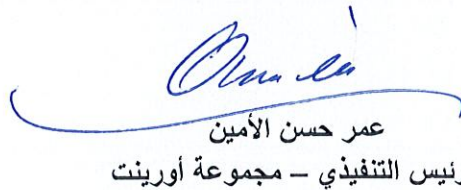 عمر حسن الأمين
رئيس التنفيذي – مجموعة أورينت